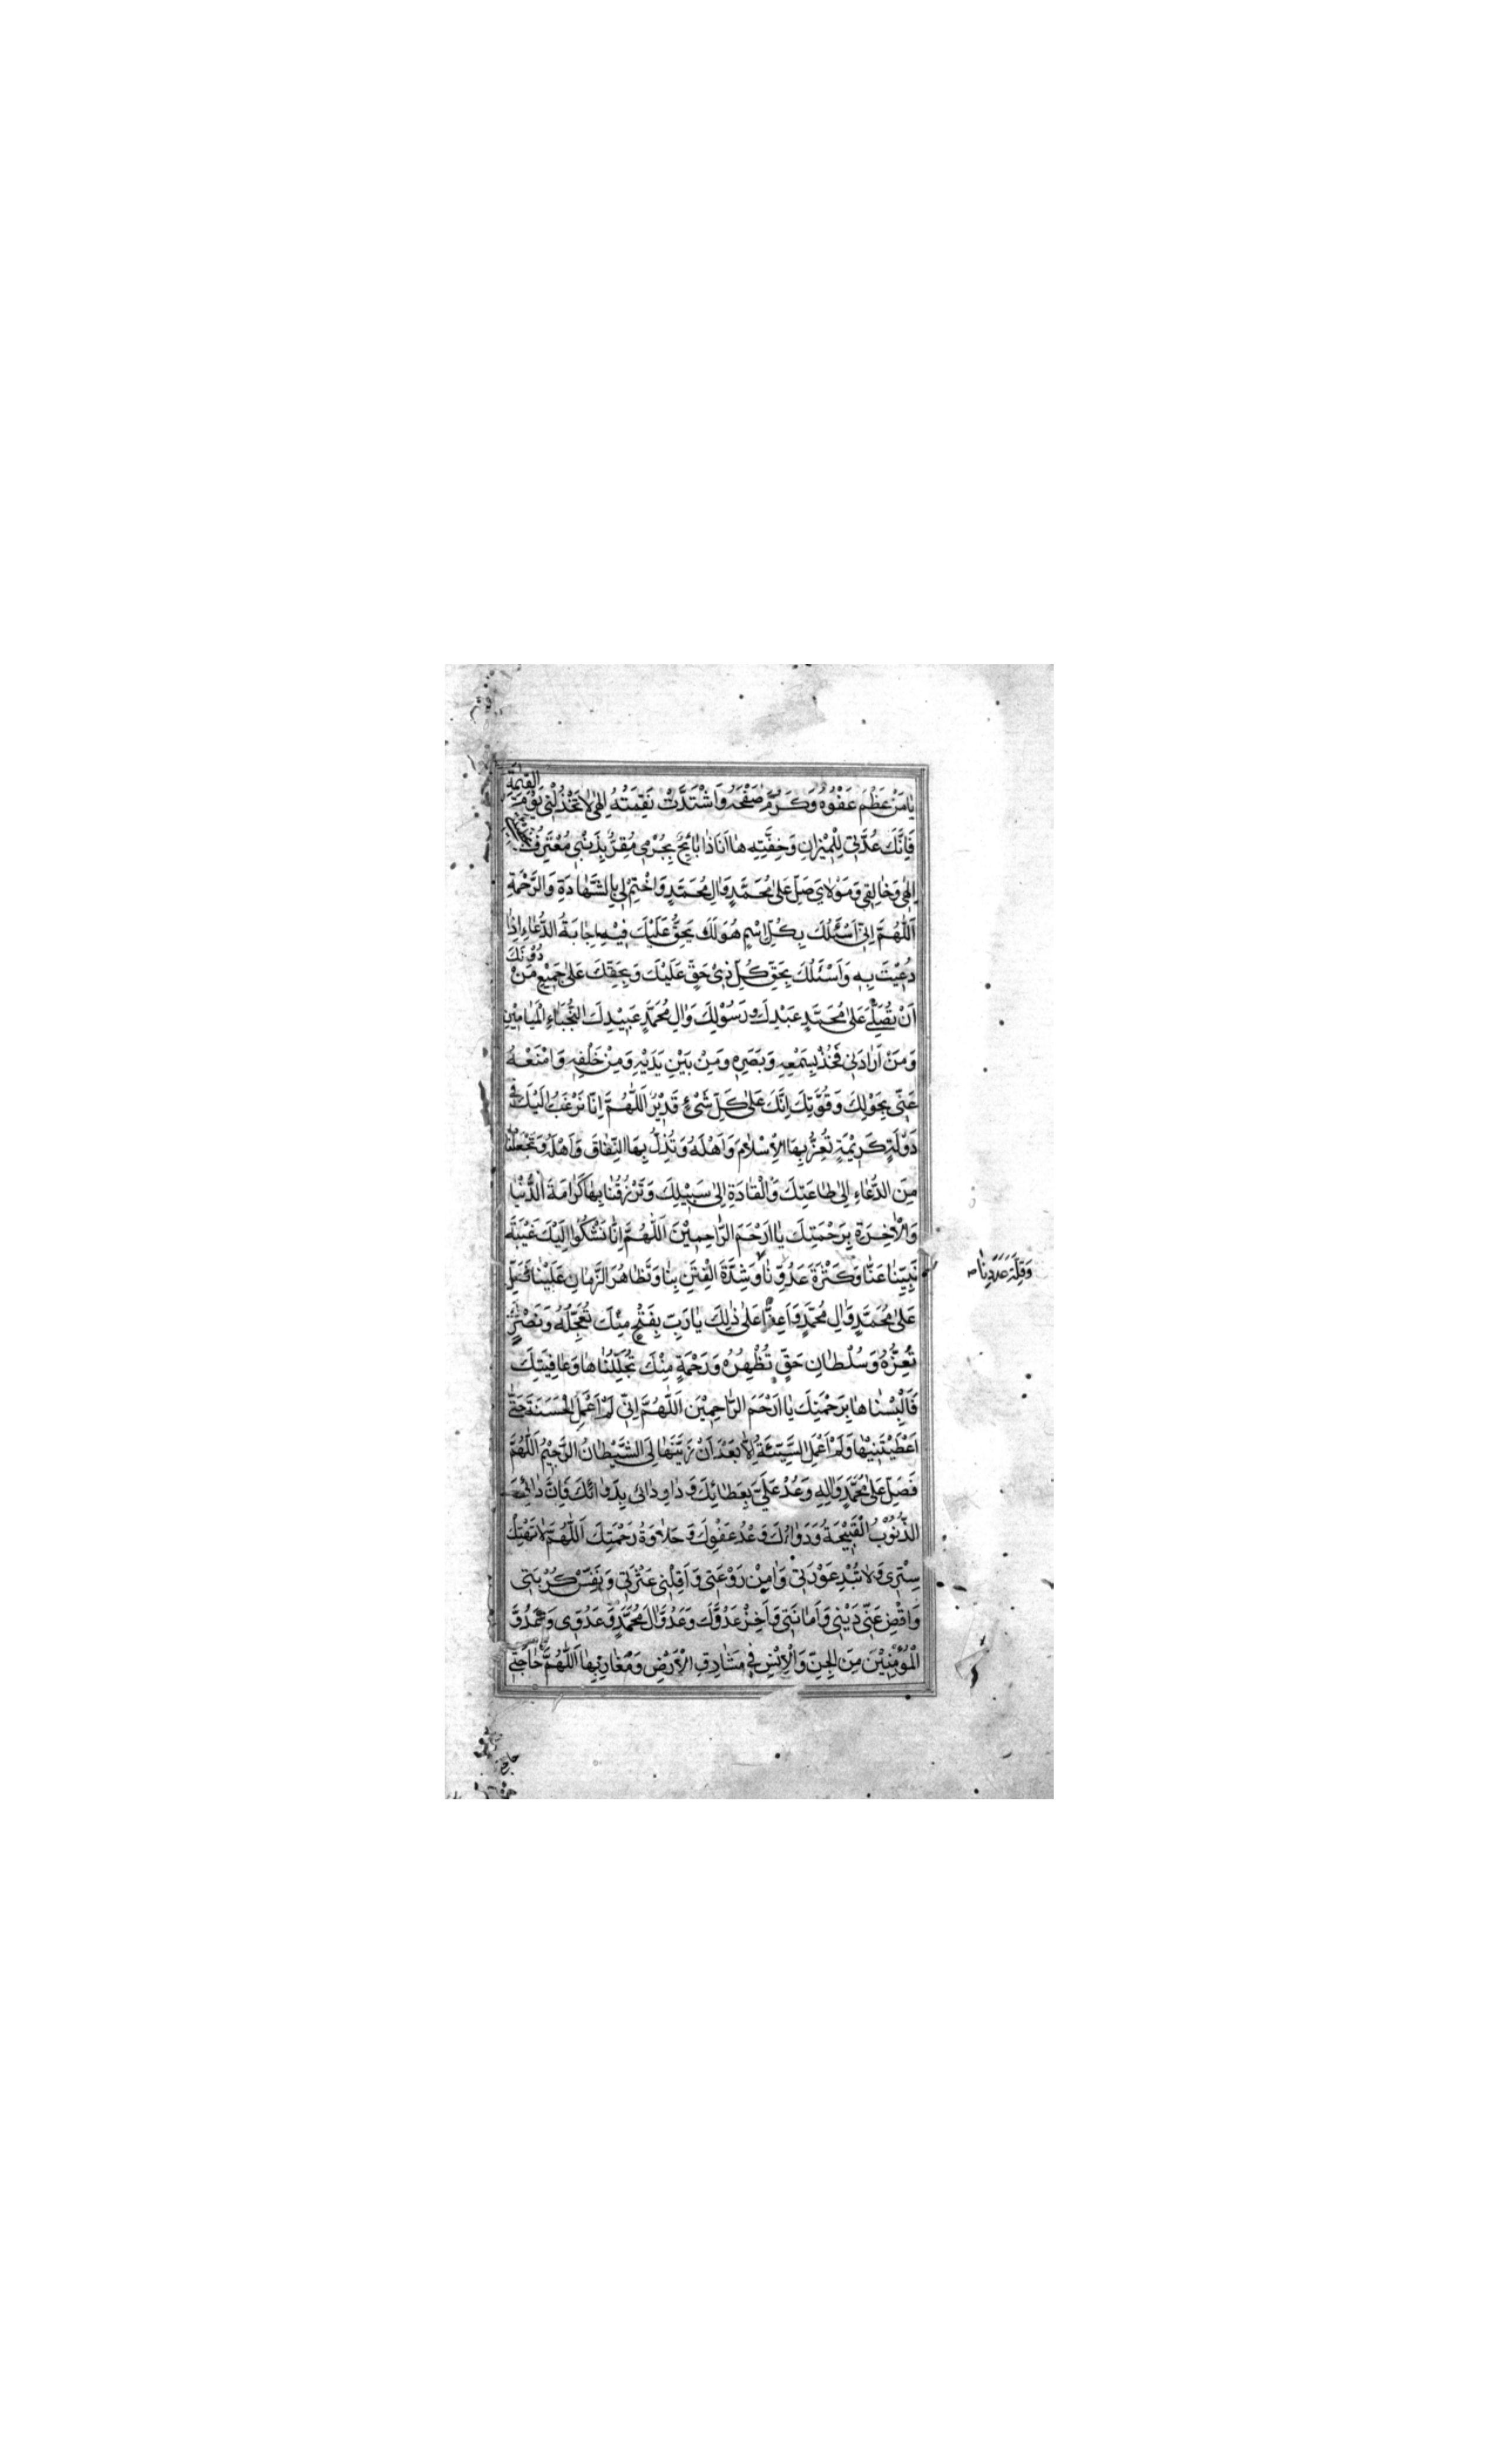 يٰا مَنْ عَظُمَ عَفْوُهُ وَكَرُمَ صَفْحُهُ وَاشْتَدَّتْ نَقِمَتُهُ اِلٰهى لا تَخْذُلْنِى يَوْمَ الْقِيٰمَةِ
فَاِنَّكَ عُدَّتِى لِلْمِيْزانِ وَخِفَّتِهِ هٰا اَنَا ذٰا بٰائِحٌ بِجُرْمِى مُقِرٌّ بِذَنْبِى مُعْتَرِفٌ
اِلٰهِى وَخٰالِقِى وَمَوْلٰاىَ صَلِّ عَلٰى مُحَمَّدٍ وَاٰلِ مُحَمَّدٍ وَاخْتِمْ لِى بِالشَّهٰادَةِ وَالرَّحْمَةِ
اَللّٰهُمَّ اِنِّى اَسْئَلُكَ بِكُلِّ اسْمٍ هُوَ لَكَ يَحِقُّ عَلَيْكَ فِيْهِ اِجٰابَةُ الدُّعٰاءِ اِذٰا
دُعِيْتَ بِهِ وَاَسْئَلُكَ بِحَقِّ كُلِّ ذِىْ حَقٍّ عَلَيْكَ وَبِحَقِّكَ عَلٰى جَمِيْعِ مَنْ دُوْنَكَ
اَنْ تُصَلِّىَ عَلٰى مُحَمَّدٍ عَبْدِكَ وَرَسُوْلِكَ وَاٰلِ مُحَمَّدٍ عَبِيْدِكَ النُّجَبٰاءِ الْمَيٰامِيْنِ
وَمَنْ اَرٰادَنِى فَخُذْ بِسَمْعِهِ وَبَصَرِهِ وَمِنْ بَيْنِ يَدَيْهِ وَمِنْ خَلْفِهِ وَامْنَعْهُ
عَنِّى بِحَوْلِكَ وَقُوَّتِكَ اِنَّكَ عَلٰى كُلِّ شَىْءٍ قَدِيْرٌ اَللّٰهُمَّ اِنّٰا نَرْغَبُ اِلَيْكَ فِى
دَوْلَةٍ كَرِيْمَةٍ تُعِزُّ بِهَا الْاِسْلٰامَ وَاَهْلَهُ وَتُذِلُّ بِهَا النِّفٰاقَ وَاَهْلَهُ وَتَجْعَلُنٰا فيها
مِنَ الدُّعٰاءِ اِلٰى طٰاعَتِكَ وَالْقٰادَةِ اِلٰى سَبِيْلِكَ وَتَرْزُقُنٰا بِهٰا كَرٰامَةَ الدُّنْيٰا
وَالْاٰخِرَةِ بِرَحْمَتِكَ يٰا اَرْحَمَ الرّٰاحِمِيْنَ اَللّٰهُمَّ اِنّٰا نَشْكُوا اِلَيْكَ غَيْبَةَ
نَبِيِّنٰا عَنّٰا وَكَثْرَةَ عَدُوِّنٰا وَشِدَّةَ الْفِتَنِ بِنٰا وَتَظٰاهُرَ الزَّمٰانِ عَلَيْنٰا فَصَلِّ
وَقِلَّةَ عَدَدِنٰا صح
عَلٰى مُحَمَّدٍ وَاٰلِ مُحَمَّدٍ وَاَعِنّٰا عَلٰى ذٰلِكَ يٰا رَبِّ بِفَتْحٍ مِنْكَ تُعَجِّلُهُ وَنَصْرٍ
تُعِزُّهُ وَسُلْطٰانِ حَقٍّ تُظْهِرُهُ وَرَحْمَةٍ مِنْكَ تُجَلِّلُنٰاهٰا وَعٰافِيَتِكَ
فَاَلْبِسْنٰاهٰا بِرَحْمَتِكَ يٰا اَرْحَمَ الرّٰاحِمِيْنَ اَللّٰهُمَّ اِنِّى لَمْ اَعْمَلِ الْحَسَنَةَ حَتّٰى
اَعْطَيْتَنِيْهٰا وَلَمْ اَعْمَلِ السَّيِّئَةَ اِلّٰا بَعْدَ اَنْ زَيَّنَهٰا لِىَ الشَّيْطٰانُ الرَّجِيْمُ اَللّٰهُمَّ
فَصَلِّ عَلٰى مُحَمَّدٍ وَاٰلِهِ وَعُدْ عَلَىَّ بِعَطٰائِكَ وَدٰاوِ دٰائى بِدَوٰائِكَ فَاِنَّ دٰائِىَ
الذُّنُوْبُ الْقَبِيْحَةُ وَدَوٰاؤُكَ وَعْدُ عَفْوِكَ وَحَلٰاوَةُ رَحْمَتِكَ اَللّٰهُمَّ لٰا تَهْتِكْ
سِتْرِى وَلٰا تُبْدِ عَوْرَتِى وَاٰمِنْ رَوْعَتِى وَاَقِلْنِى عَثْرَتِى وَنَفِّسْ كُرْبَتِى
وَاقْضِ عَنِّى دَيْنِى وَاَمٰانَتِى وَاَخْزِ عَدُوَّكَ وَعَدُوَّ اٰلِ مُحَمَّدٍ وَعَدُوِّى وَعَدُوَّ
الْمُؤْمِنِيْنَ مِنَ الْجِنِّ وَالْاِنْسِ فِى مَشٰارِقِ الْاَرْضِ وَمَغٰارِبِهٰا اَللّٰهُمَّ حٰاجَتِى